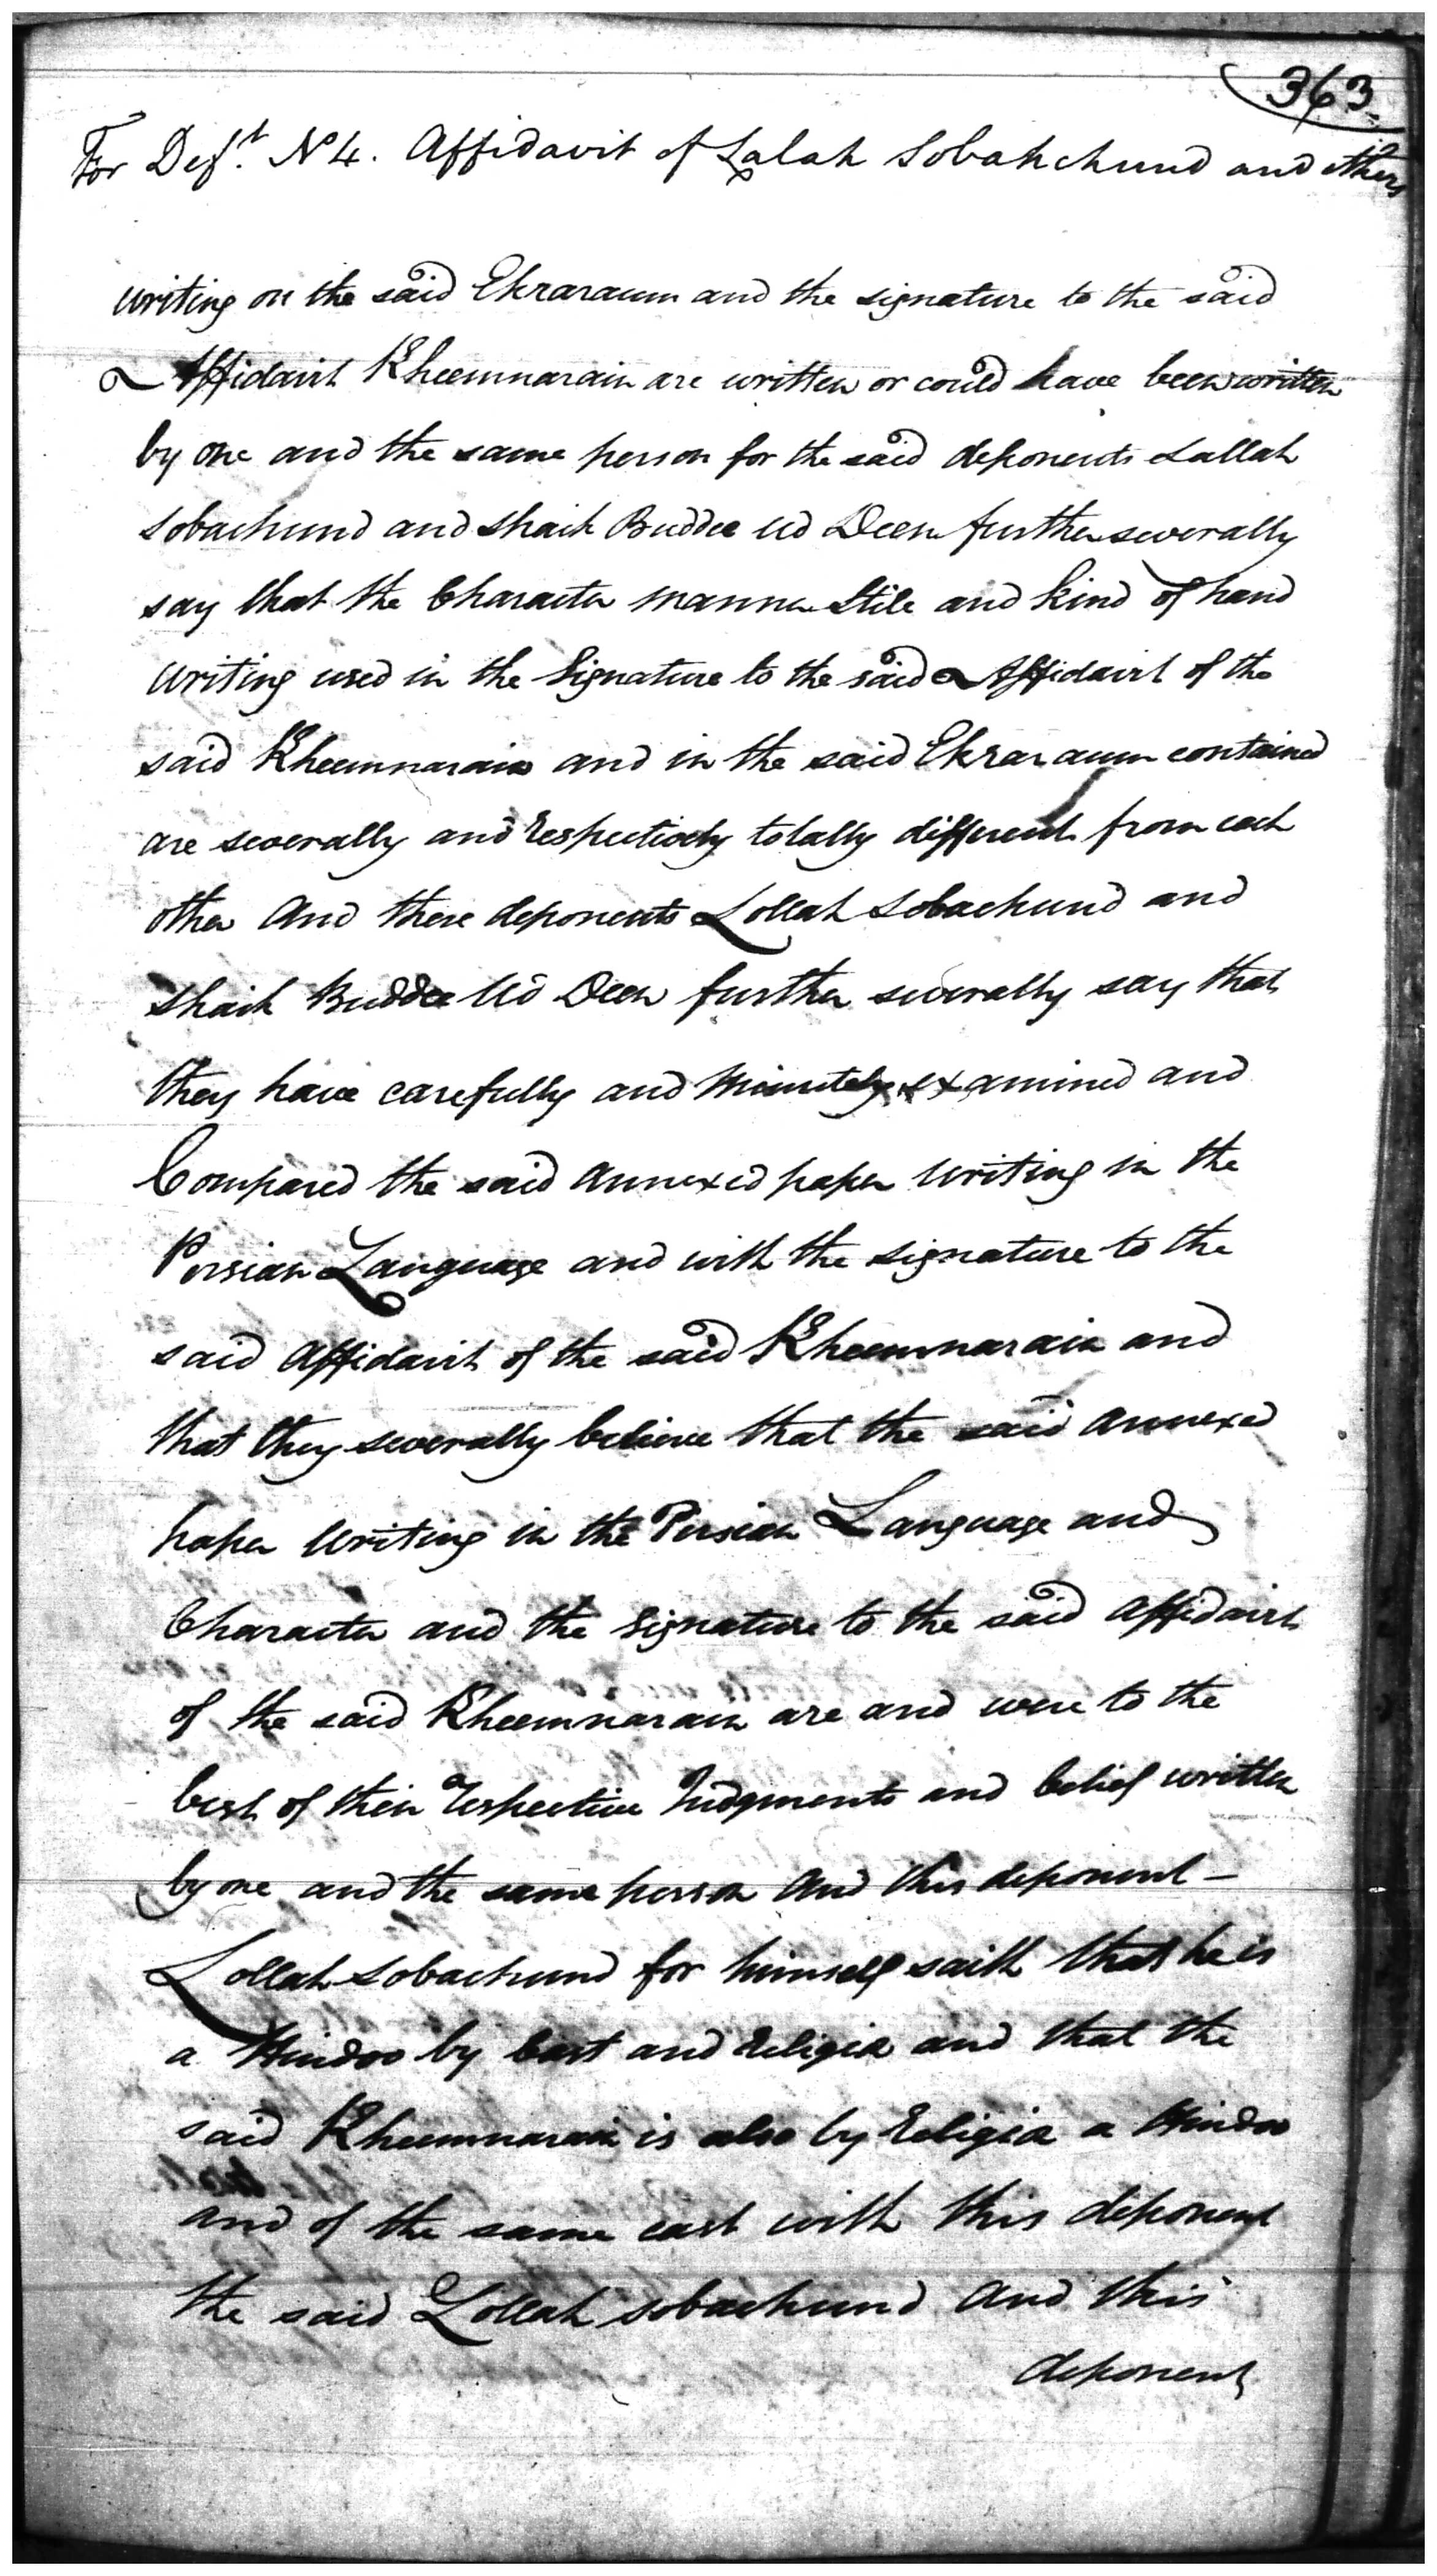 363.
For Def.t N 4. Affidavit of Lalah Sobahchund and others
writing on the said Ekraraum and the signature to the said
Affidavit Kheemnarain are written or could have been written
by one and the same person for the said deponents Lallah
Sobachund and Shaik Buddee ud Deen further severally
say that the Character manner Stile and kind of hand
writing used in the Signature to the said Affidavit of the
said Kheemnarain and in the said Ekraraum contained
are severally and respectively totally different from each
other and these deponents Lollah Sobachund and
Shaik Buddee Ud Deen further severally say that
they have carefully and minutely examined and
Compared the said annexed paper writing in the
Persian Language and with the signature to the
said affidavit of the said Kheemnarain and
that they severally believe that the said annexed
paper writing in the Persian Language and
Character and the Signature to the said affidavit
of the said Kheemnarain are and were to the
best of their respective Judgments and belief written
by one and the same person and this deponent -
Lollah Sobachund for himself saith that he is
a Hindoo by Cast and religion and that the
said Kheemnarain is also by religion a Hindoo
and of the same cast with this deponent
the said Lollah Sobachund and this
deponent